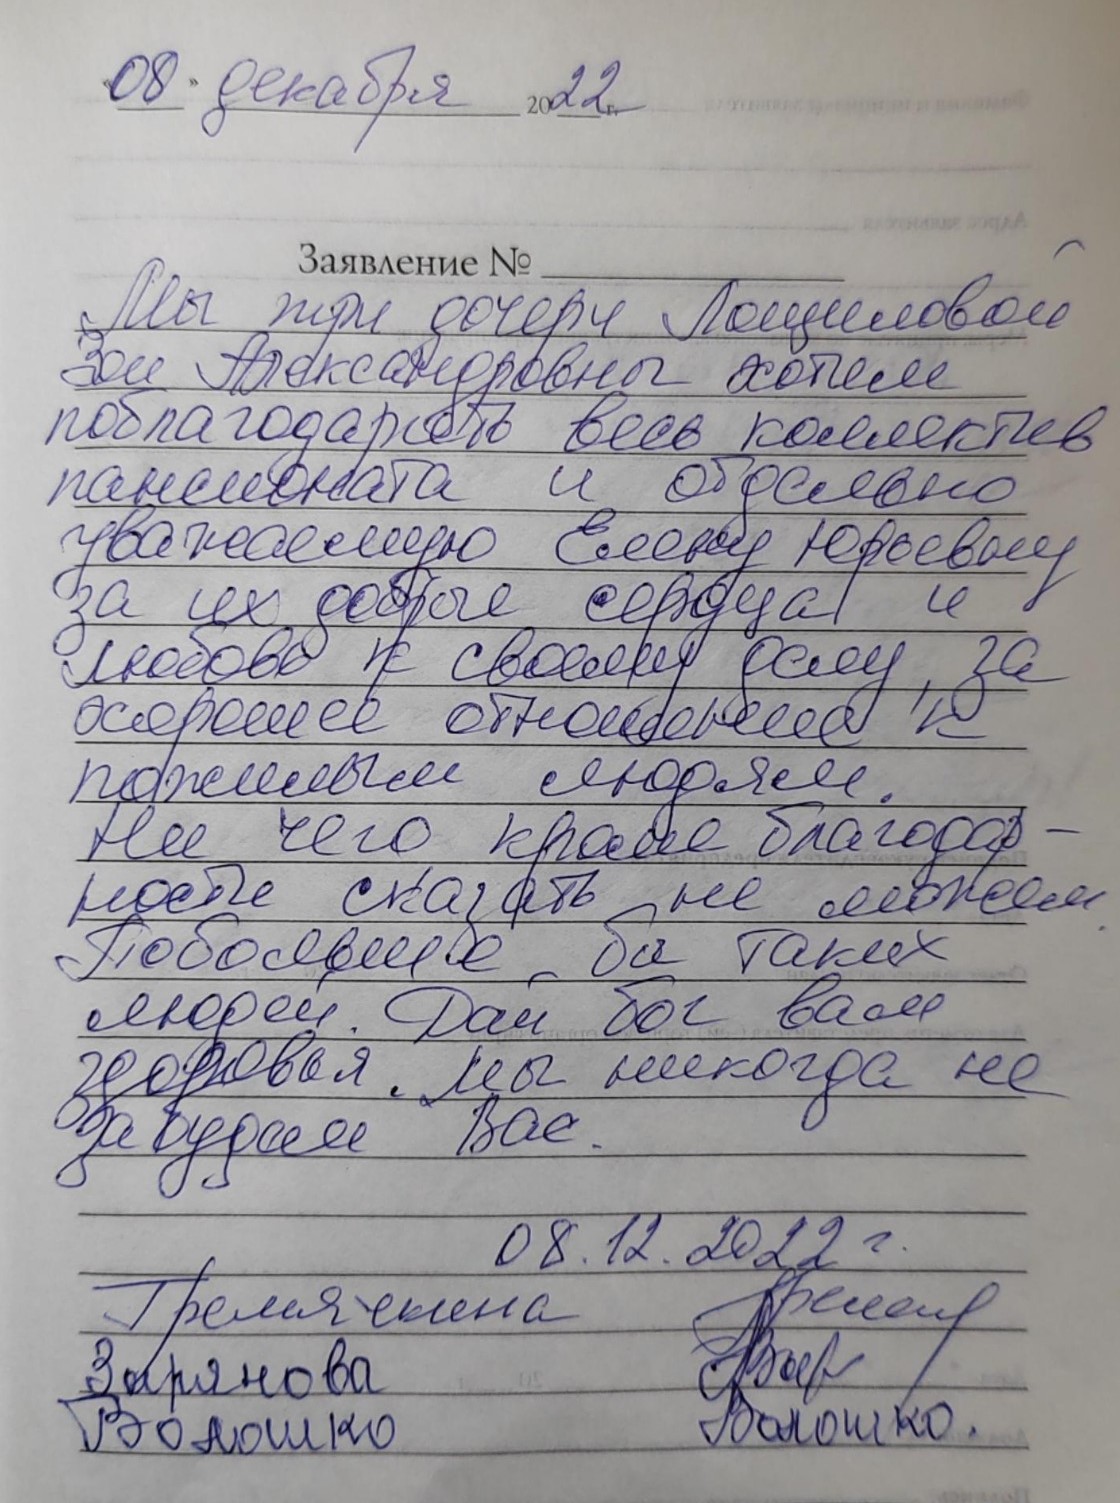 "08" декабря 2022 г.
Заявление №
Мы три дочери Лощиловой
Зои Александровны хотим
поблагодарить весь коллектив
пансионата и отдельно
уважаемую Елену Юрьевну
за их добрые сердца и
любовь к своему делу, за
хорошее отношение к
пожилым людям.
Ни чего кроме благодар-
ности сказать не можем.
Побольше бы таких
людей. Дай бог вам
здоровья. Мы никогда не
забудем Вас.
08.12.2022 г.
Гремячкина
Зырянова
Волошко Волошко.